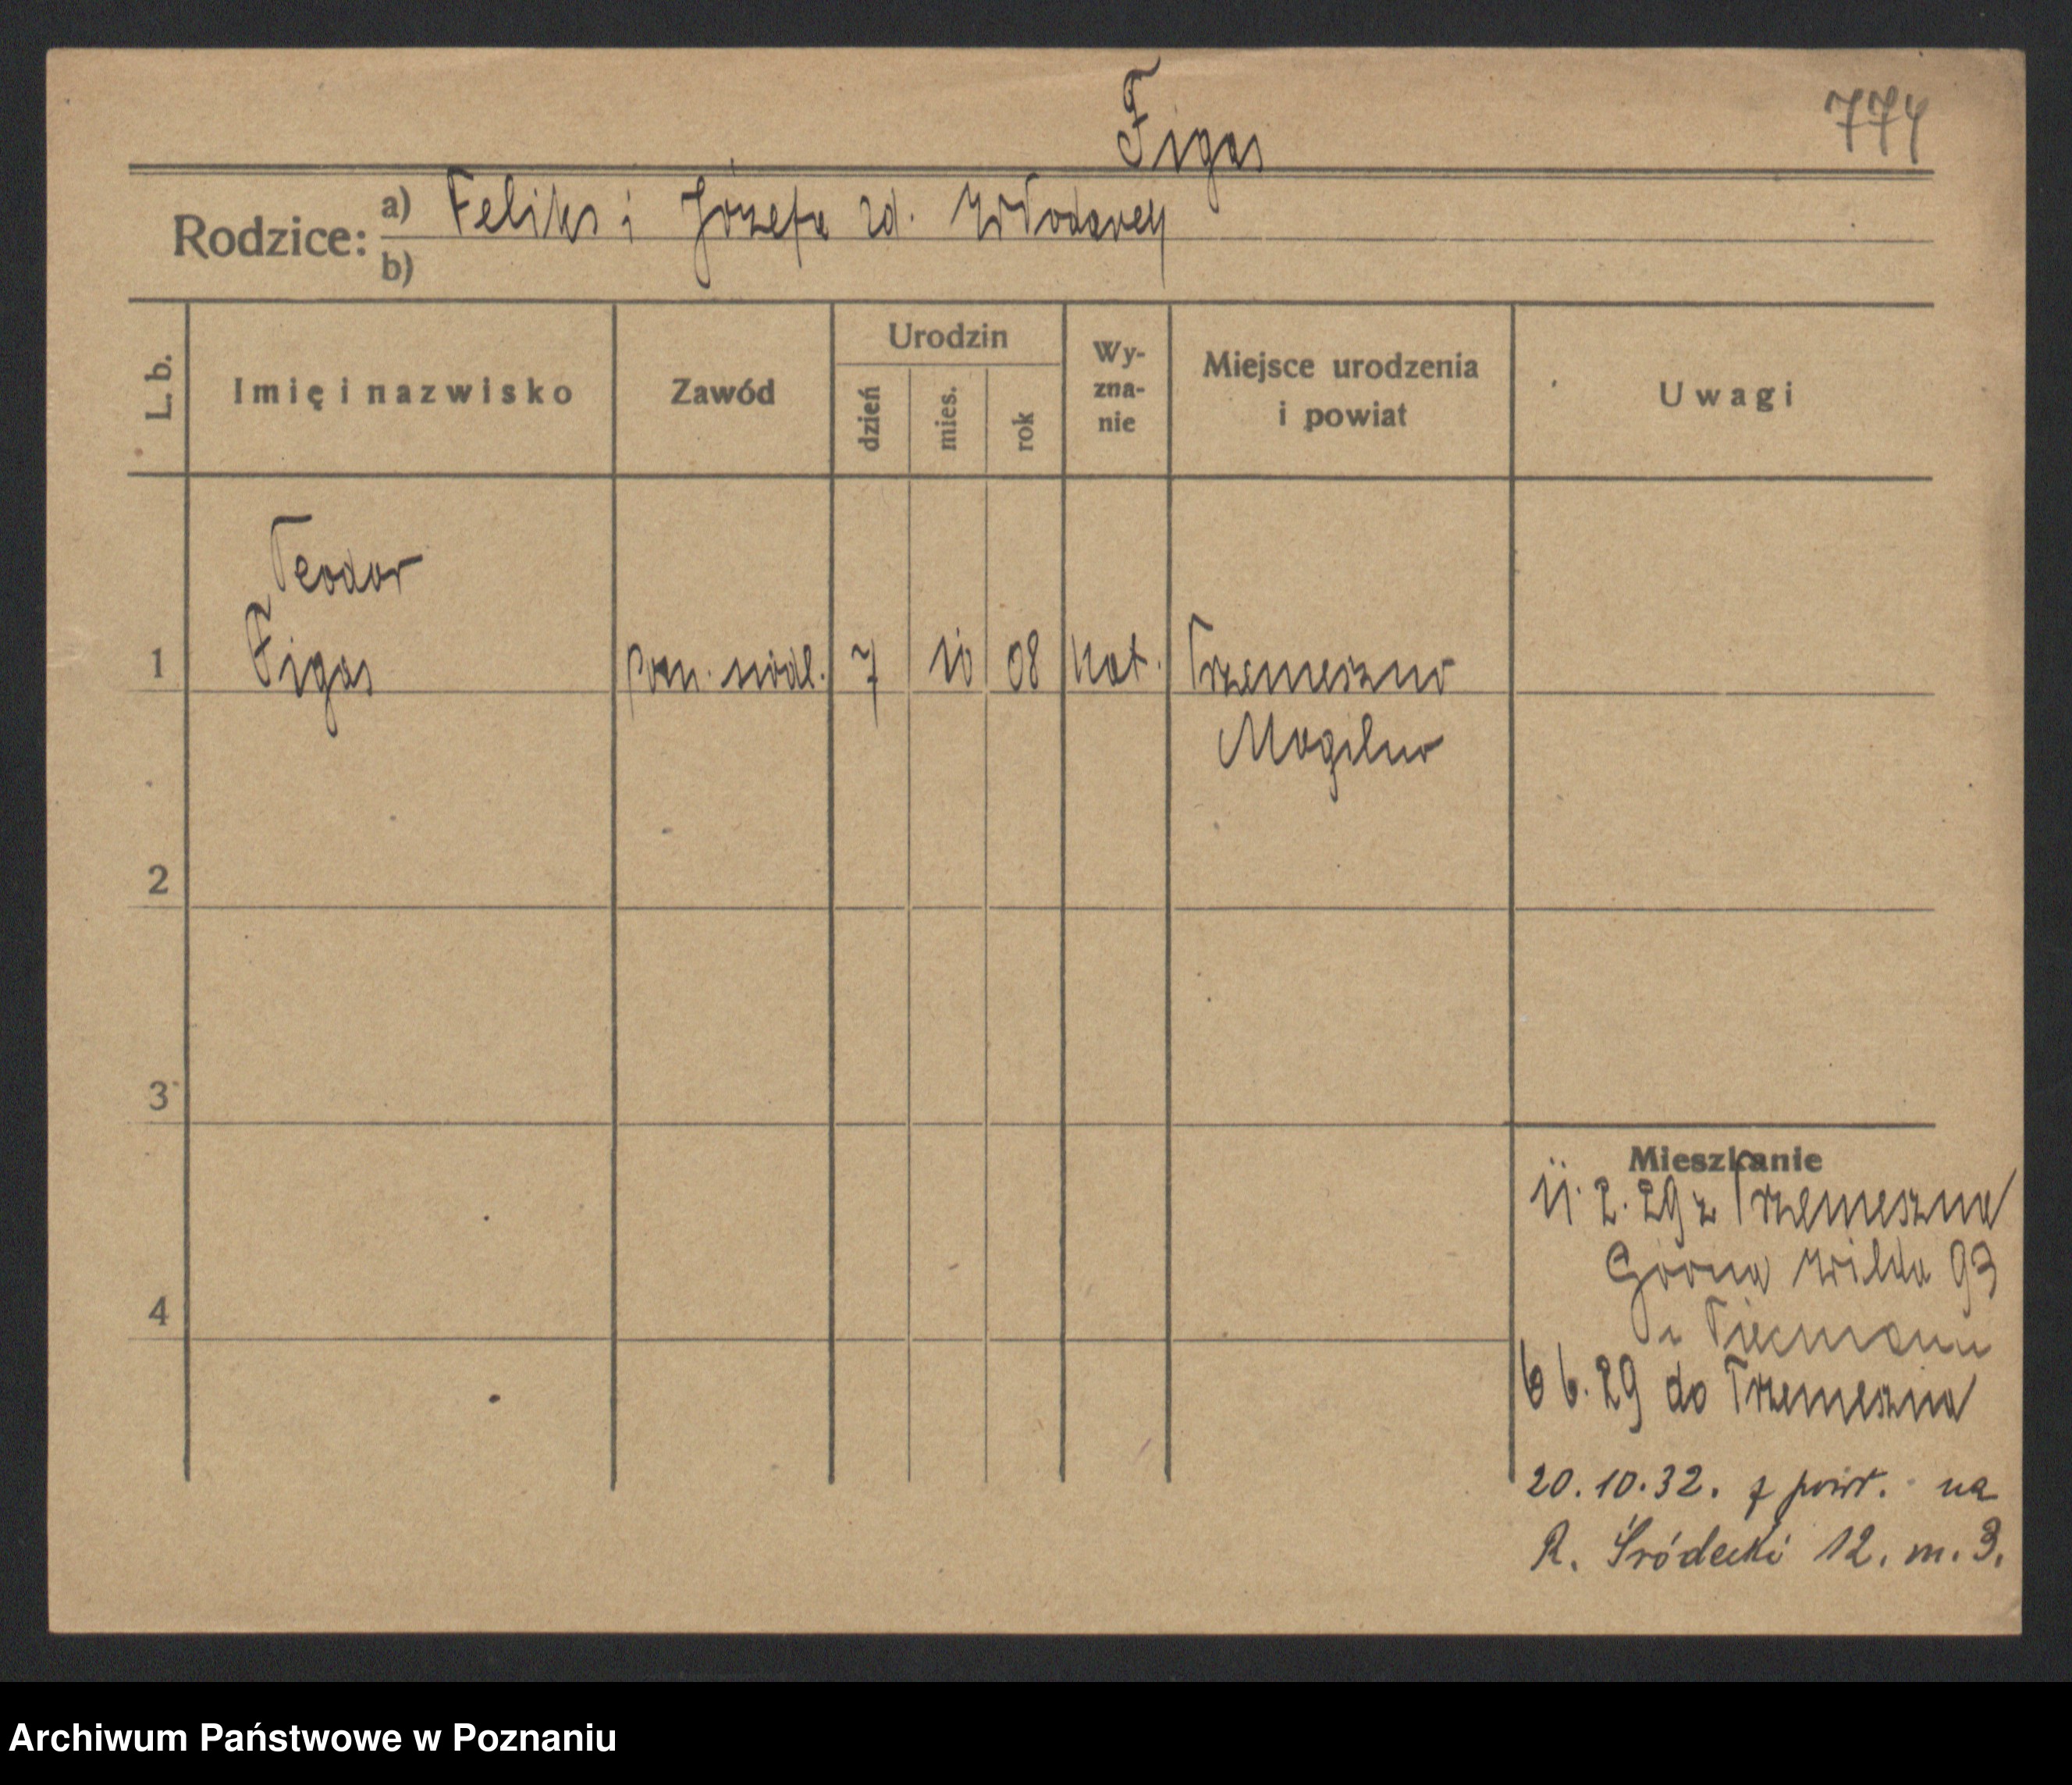 Figas
774
Rodzice: a) Feliks i Józefa zd. Włodarek
b)
L. b.
Imię i nazwisko
Zawód
Urodzin
dzień
mies.
rok
Wy-
zna-
nie
Miejsce urodzenia
i powiat
Uwagi
Teodor
1 Figas pom. siodl. 7 10 08 kat. Trzemeszno
Mogilno
2
3
4
Mieszkanie
11. 2. 29 z Trzemeszna
Górna Wilda 93
6 6. 29 do Trzemeszna
20. 10. 32. z powt. na
R. Śródecki 12. m. 3.
Archiwum Państwowe w Poznaniu